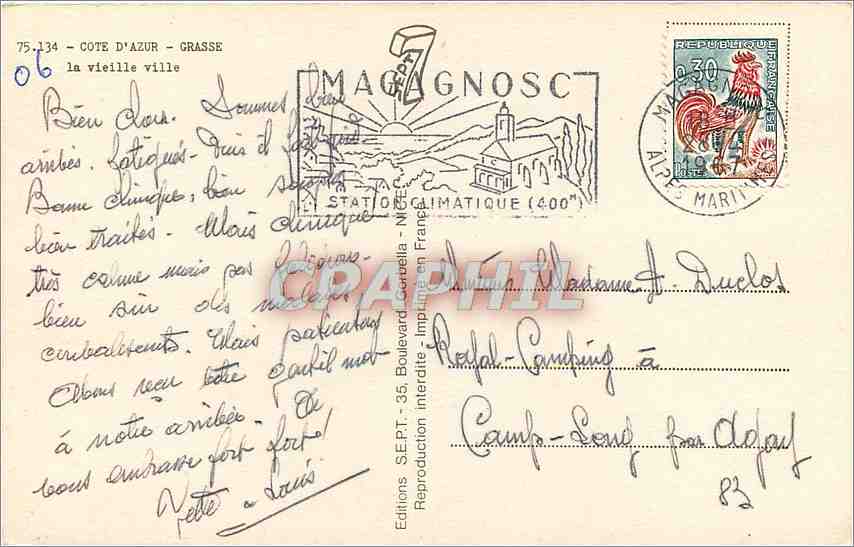 75.134 - COTE D'AZUR - GRASSE
la vieille ville
06
SEPT
MAGAGNOSC
STATION CLIMATIQUE (400m)
REPUBLIQUE FRANÇAISE
0,30
POSTES
MAGAGNOSC
1967
ALPES MARITIMES
Bien chers. Sommes bien
arrivés. fatigués. Puis il fait
Bonne clinique, bien soignés
bien traités. Mais clinique
très calme mais pas
bien sûr des malades
. Mais patientons
Avons reçu votre gentil mot
à notre arrivée. On
vous embrasse fort fort!
Yette - Louis
Editions S.E.P.T. - 35, Boulevard Gorbella - NICE
Reproduction interdite - Imprimé en France
CPAPHIL
Madame A. Duclos
Rafal-Camping à
Camp-Long par Agay
83